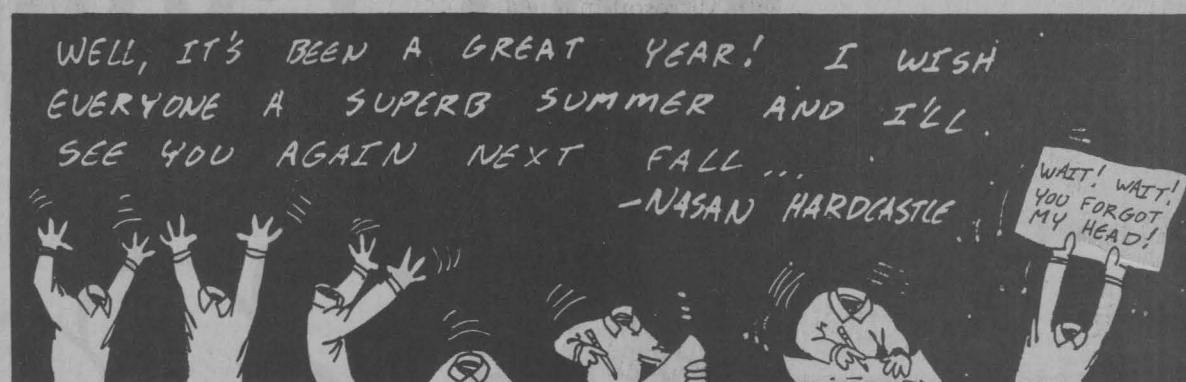 WELL, IT'S BEEN A GREAT YEAR! I WISH
EVERYONE A SUPERB SUMMER AND I'LL
SEE YOU AGAIN NEXT FALL...
-NASAN HARDCASTLE
WAIT! WAIT!
YOU FORGOT
MY HEAD!